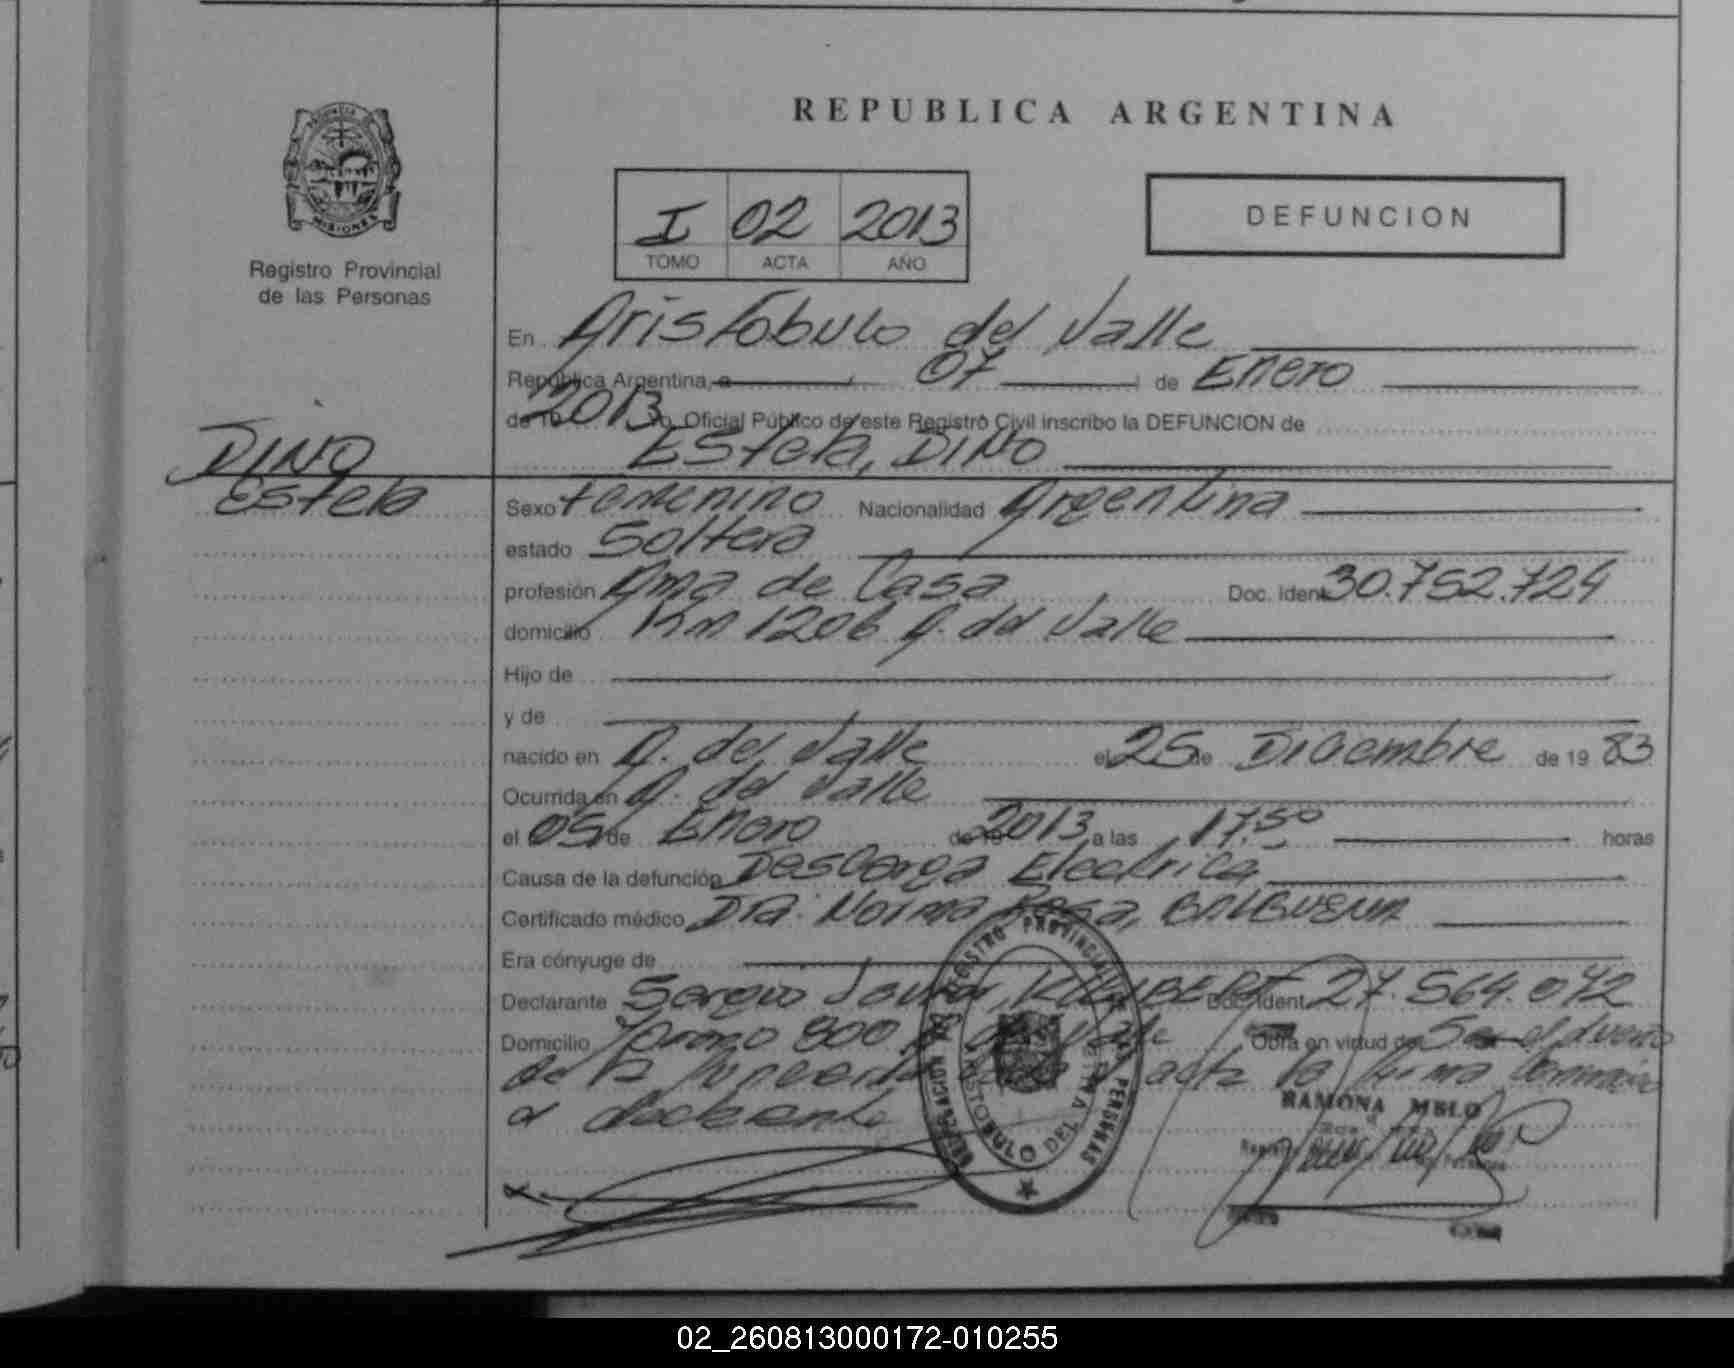 REPUBLICA ARGENTINA
PROVINCIA DE
MISIONES
Registro Provincial
de las Personas
I 02 2013
TOMO ACTA AÑO
DEFUNCION
En Aristóbulo del Valle
República Argentina, a 07 de Enero
de 19 2013 yo, Oficial Público de este Registro Civil inscribo la DEFUNCION de
Estela, DINO
DINO
Estela
Sexo femenino Nacionalidad Argentina
estado Soltera
profesión Ama de Casa Doc. Ident. 30.752.724
domicilio Km 1206 A. del Valle
Hijo de
y de
nacido en A. del Valle el 25 de Diciembre de 19 83
Ocurrida en A. del Valle
el 05 de Enero de 19 2013 a las 17,50 horas
Causa de la defunción Descarga Electrica
Certificado médico Dra. Norma Rosa, BALBUENA
Era cónyuge de
Declarante Sergio Doc. Ident. 27.564.072
Domicilio 800 Obra en virtud de: Ser el dueño
de la acta la firma
el declarante
REGISTRO PROVINCIAL DE LAS PERSONAS
ARISTOBULO DEL VALLE
RAMONA MELO
02_260813000172-010255